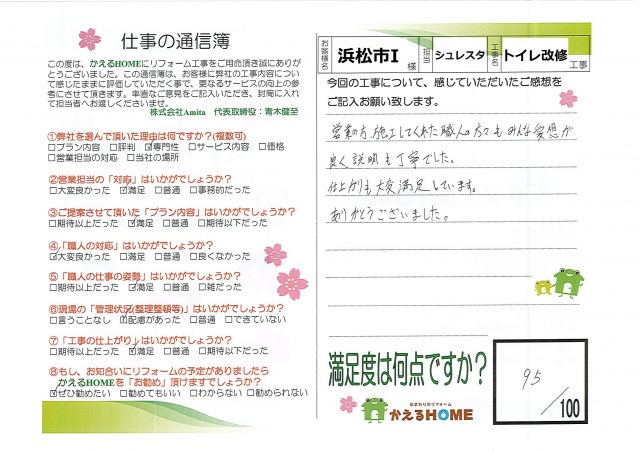 仕事の通信簿
この度は、かえるHOMEにリフォーム工事をご用命頂き誠にありが
とうございました。この通信簿は、お客様に弊社の工事内容につい
て感じたままに評価していただく事で、更なるサービスの向上の参
考にさせて頂きます。率直なご意見をご記入いただき、封筒に入れ
て担当者へお渡しくださいませ。
株式会社Amita 代表取締役:青木健至
①弊社を選んで頂いた理由は何ですか?(複数可)
□プラン内容 □評判 ☑専門性 □サービス内容 □価格
□営業担当の対応 □当社の場所
②営業担当の「対応」はいかがでしょうか?
□大変良かった ☑満足 □普通 □事務的だった
③ご提案させて頂いた「プラン内容」はいかがでしょうか?
□期待以上だった ☑満足 □普通 □期待以下だった
④「職人の対応」はいかがでしょうか?
☑大変良かった □満足 □普通 □良くなかった
⑤「職人の仕事の姿勢」はいかがでしょうか?
□期待以上だった ☑満足 □普通 □雑だった
⑥現場の「管理状況(整理整頓等)」はいかがでしょうか?
□言うことなし ☑配慮があった □普通 □できていない
⑦「工事の仕上がり」はいかがでしょうか?
□期待以上だった ☑満足 □普通 □期待以下だった
⑧もし、お知合いにリフォームの予定がありましたら
かえるHOMEを「お勧め」頂けますでしょうか?
☑ぜひ勧めたい □勧めてもいい □わからない □勧められない
お客様名 浜松市I 様 担当 シュレスタ 工事名 トイレ改修 工事
今回の工事について、感じていただいたご感想を
ご記入お願い致します。
営業の方、施工してくれた職人の方々もみんな愛想が
良く説明も丁寧でした。
仕上がりも大変満足しています。
ありがとうございました。
満足度は何点ですか?
95/100
水まわりのリフォーム
かえるHOME